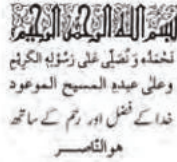 بسم الله الرحمن الرحيم
نحمده و نصلی علی رسوله الکریم
وعلی عبده المسیح الموعود
خدا کے فضل اور رحم کے ساتھ
هو النّاصر